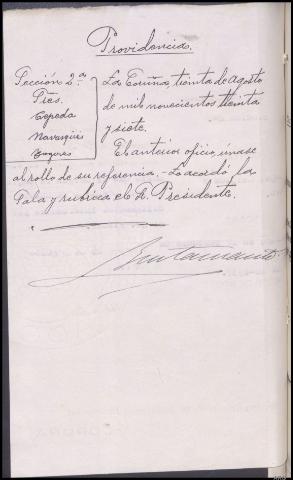 Providencia.
Sección 2.ª
Sres.
Cepeda
Navarro
La Coruña, treinta de Agosto
de mil novecientos treinta
y siete.
El anterior oficio, únase
al rollo de su referencia.- Lo acordó la
Sala y rubrica el Sr. Presidente.